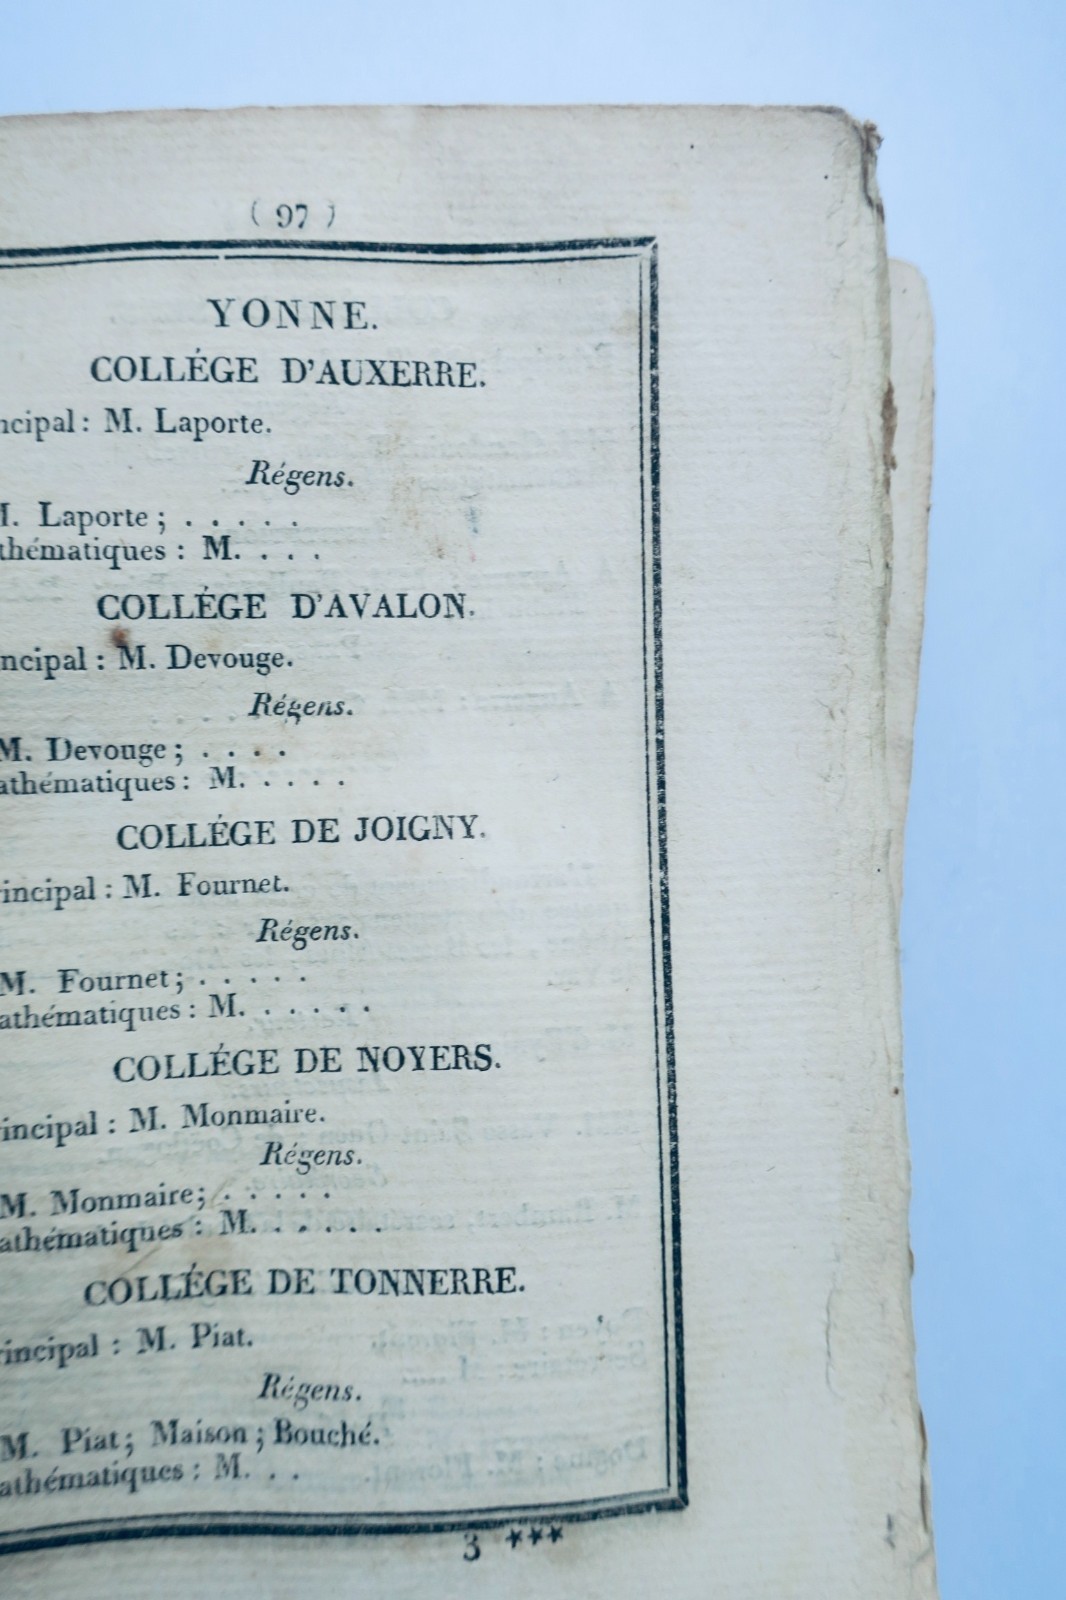 ( 97 )
YONNE.
COLLÉGE D'AUXERRE.
ncipal : M. Laporte.
Régens.
M. Laporte ; . . . . .
thématiques : M. . . .
COLLÉGE D'AVALON.
ncipal : M. Devouge.
Régens.
M. Devouge ; . . . .
athématiques : M. . . . .
COLLÉGE DE JOIGNY.
rincipal : M. Fournet.
Régens.
M. Fournet ; . . . . .
athématiques : M. . . . . .
COLLÉGE DE NOYERS.
incipal : M. Monmaire.
Régens.
M. Monmaire ; . . . . .
athématiques : M. . . . . .
COLLÉGE DE TONNERRE.
rincipal : M. Piat.
Régens.
M. Piat ; Maison ; Bouché.
athématiques : M. . .
3 ***